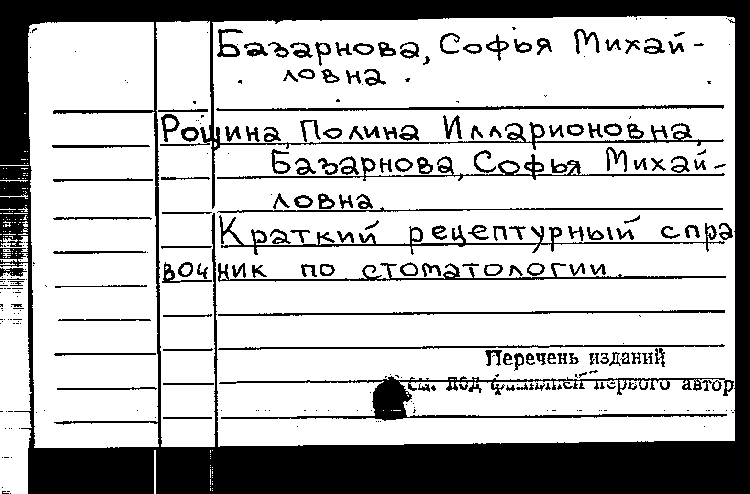 Базарнова, Софья Михай-
ловна.
Рощина, Полина Илларионовна,
Базарнова, Софья Михай-
ловна.
Краткий рецептурный спра
вочник по стоматологии.
Перечень изданий
см. под фамилией первого автор